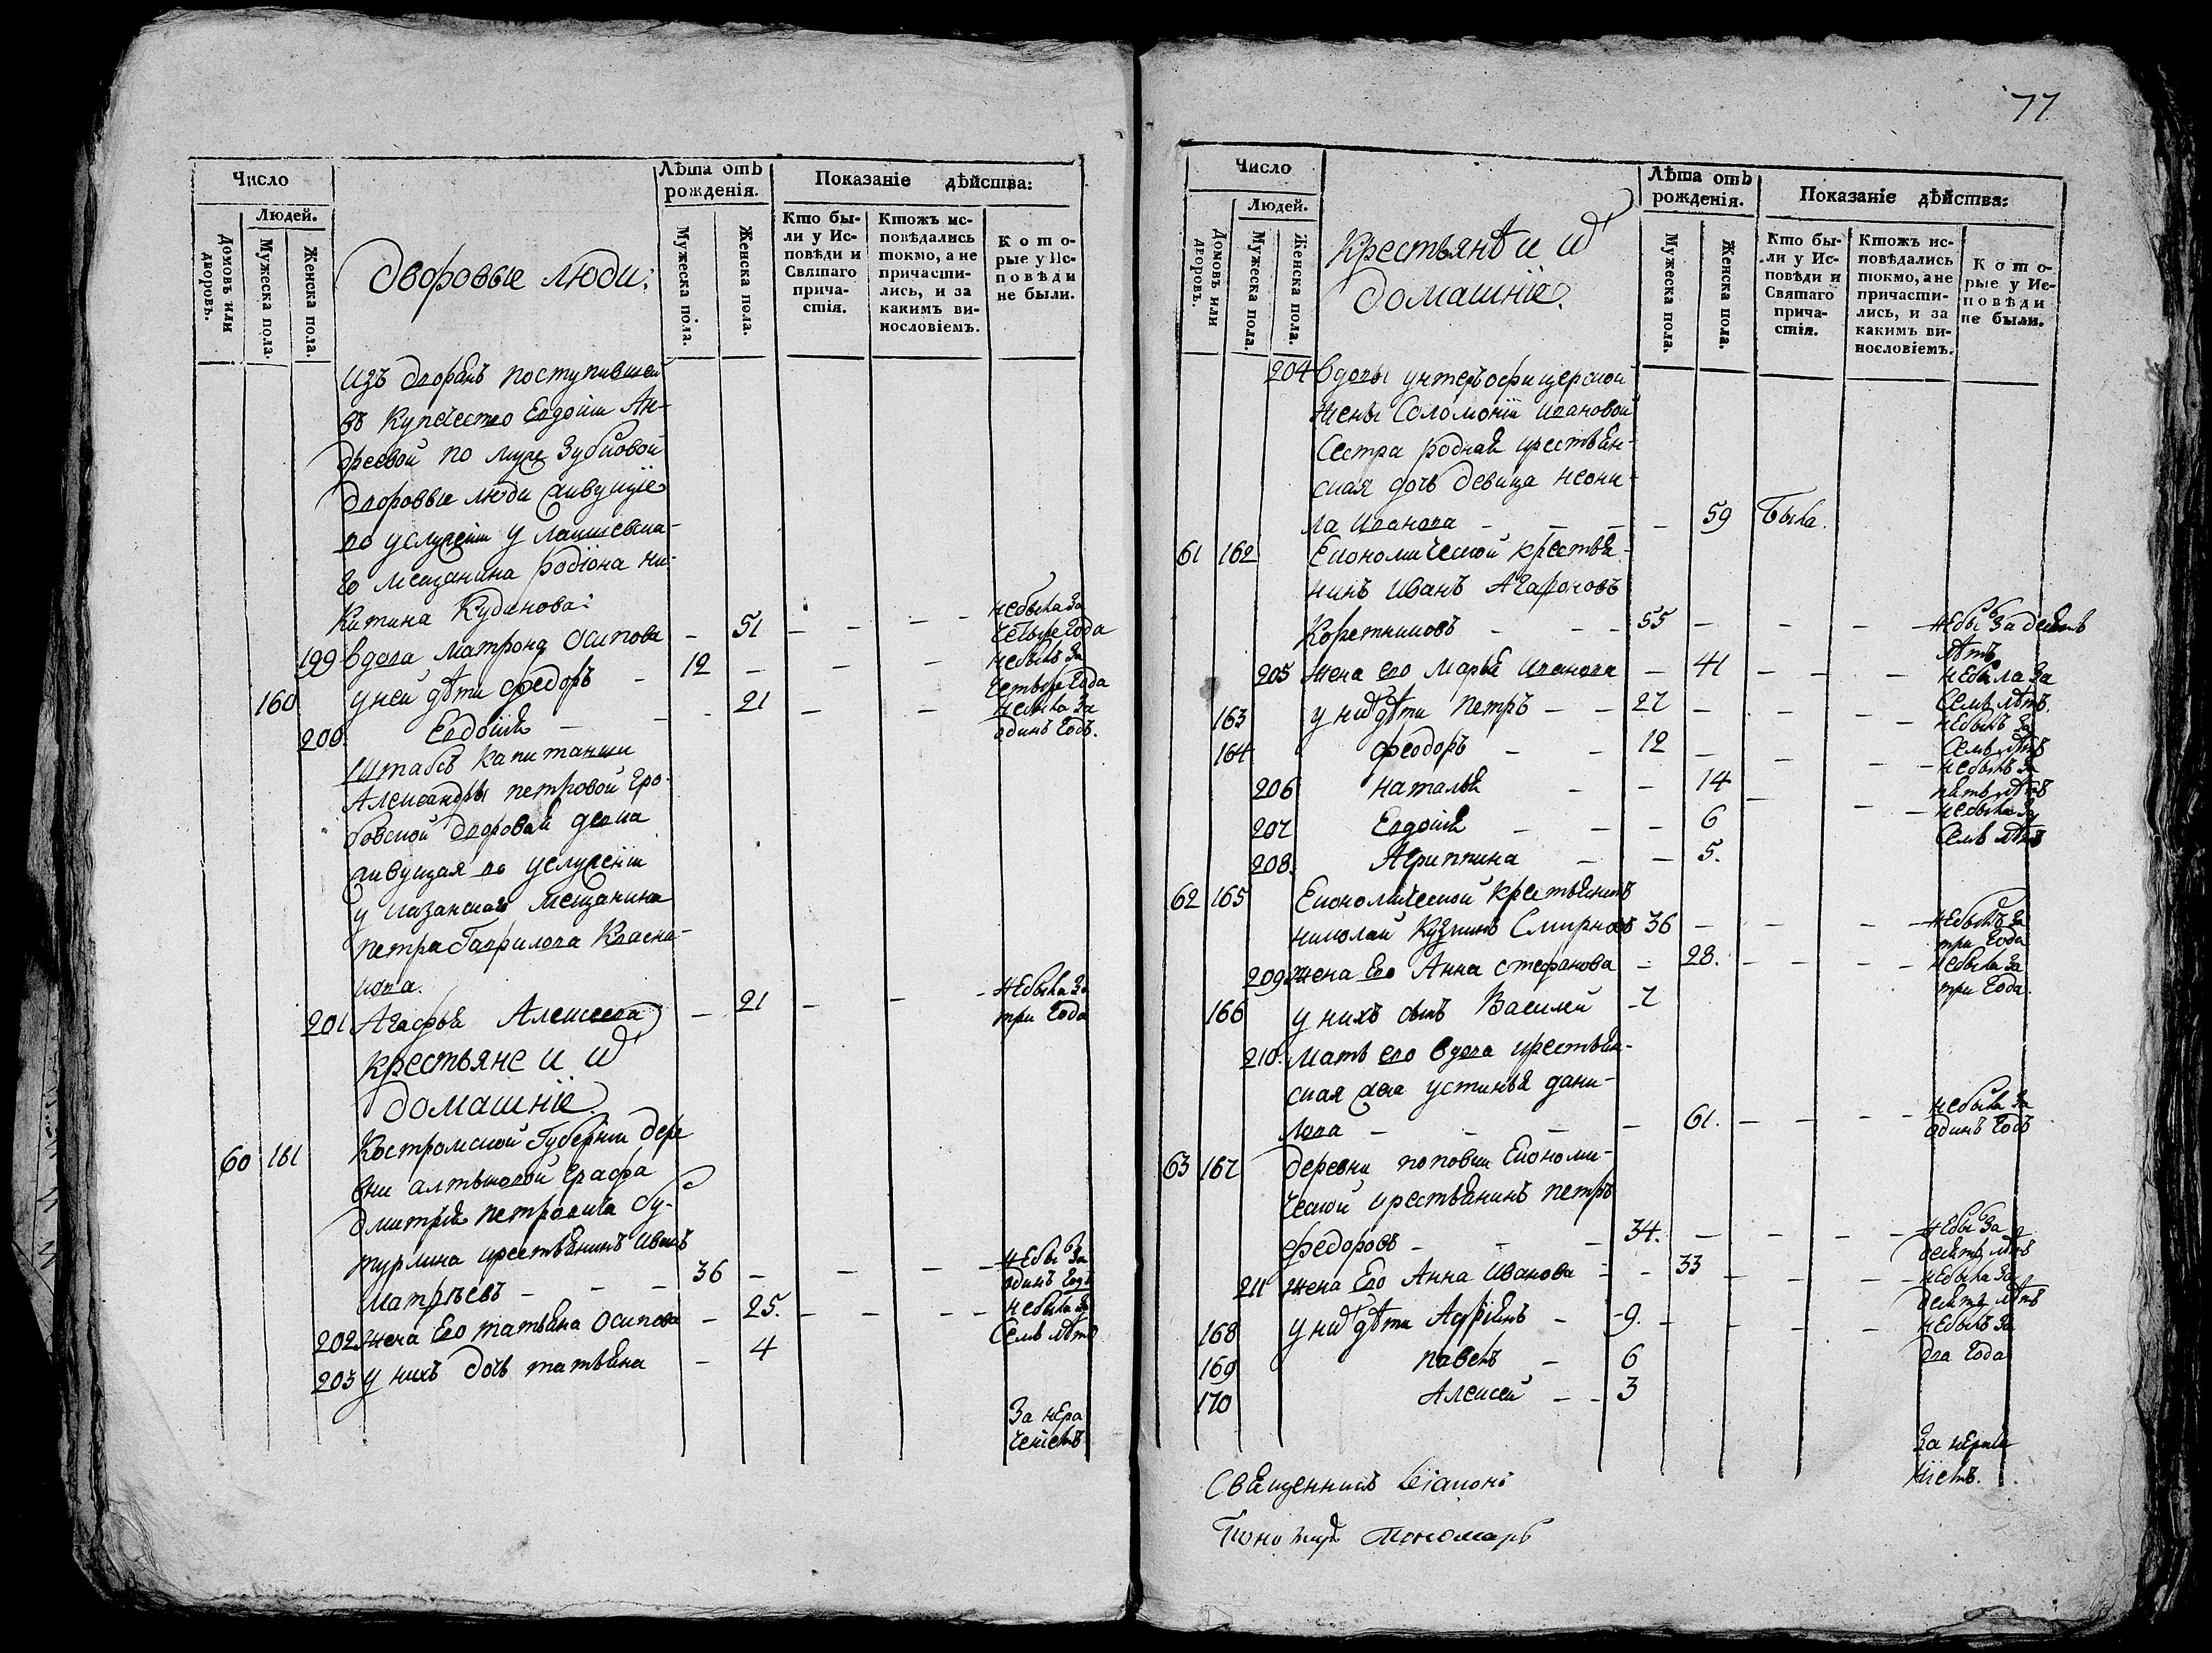 Число
Людей.
Домовъ или дворовъ.
Мужеска пола.
Женска пола.
Дворовые люди:
Лѣта отъ рожденія.
Мужеска пола.
Женска пола.
Показаніе дѣйства:
Кто были у Исповѣди и Святаго причастія.
Ктожъ исповѣдались токмо, а не причастились, и за какимъ винословіемъ.
Которые у Исповѣди не были.
Изъ дворянъ поступившей
въ купечество Евдокіи Ан-
дреевой по муже Зубковой
дворовые люди живущіе
по услуженію у лаишевска-
го мещанина Родіона Ни-
китина Кудинова:
199 вдова Матрона Осипова - 51 - - - - небыла за четыре года
160 у ней дѣти Федоръ - 12 - - - небылъ за четыре года
200 Евдокія - - - 21 - - небыла за одинъ годъ.
Штабсъ капитанши
Александры Петровой
дворовая девка
живущая по услуженію
у казанскаго мещанина
Петра Гаврилова Красна-
кова.
201 Агафья Алексеева - 21 - - - небыла за три года
Крестьяне и ихъ
домашніе.
60 161 Костромской Губерніи дере
вни графа
Дмитрія Петровича Бу-
турлина крестьянинъ Иванъ
Матвѣевъ - - - 36 - - - - небылъ за одинъ годъ
202 жена Его татьяна Осипова - 25. - - - - небыла за Семь лѣтъ
203 у нихъ дочь татьяна - 4
За нера
ченіемъ
77
Число
Людей.
Домовъ или дворовъ.
Мужеска пола.
Женска пола.
Крестьянѣ и ихъ
домашніе.
Лѣта отъ рожденія.
Мужеска пола.
Женска пола.
Показаніе дѣйства:
Кто были у Исповѣди и Святаго причастія.
Ктожъ исповѣдались токмо, а не причастились, и за какимъ винословіемъ.
Которые у Исповѣди не были.
204 вдовы унтеръофицерской
жены Соломоніи Ивановой
Сестра родная крестьян-
ская дочь девица неони-
ла Иванова - - - - 59 Была.
61 162 Економической крестья-
нинъ Иванъ Агафоновъ
Коретниковъ - - - 55 - - - - небылъ за девять лѣтъ
205 жена его Марья Иванова - 41 - - - небыла за Семь лѣтъ.
163 у нихъ дѣти Петръ - - 27 - - - - небылъ за Семь лѣтъ
164 Феодоръ - - 12 - - - - небылъ за пять лѣтъ
206 Наталья - - 14 - - - небыла за Семь лѣтъ
207 Евдокія - - - 6
208. Агриппина - - 5.
62 165 Економической крестьянинъ
Николай Кузминъ Смирновъ 36 - - - - небылъ за три года
209. жена Его Анна Стефанова - 28. - - - - небыла за три года.
166 у нихъ сынъ Василей - 7
210. Мать его вдова крестьян-
ская жена Устинья Дани-
лова - - - - 61. - - - - небыла за одинъ годъ
63 167 деревни поповки Економи-
ческой крестьянинъ Петръ
Федоровъ - - - 34. - - - - небылъ за девять лѣтъ
211 жена Его Анна Иванова - - 33 - - - - небыла за девять лѣтъ
168 у нихъ дѣти Адріянъ - - 9. - - - - небылъ за два года
169 Павелъ - 6
170 Алексей - - 3
За нераче
ніемъ.
Священникъ
пономарь